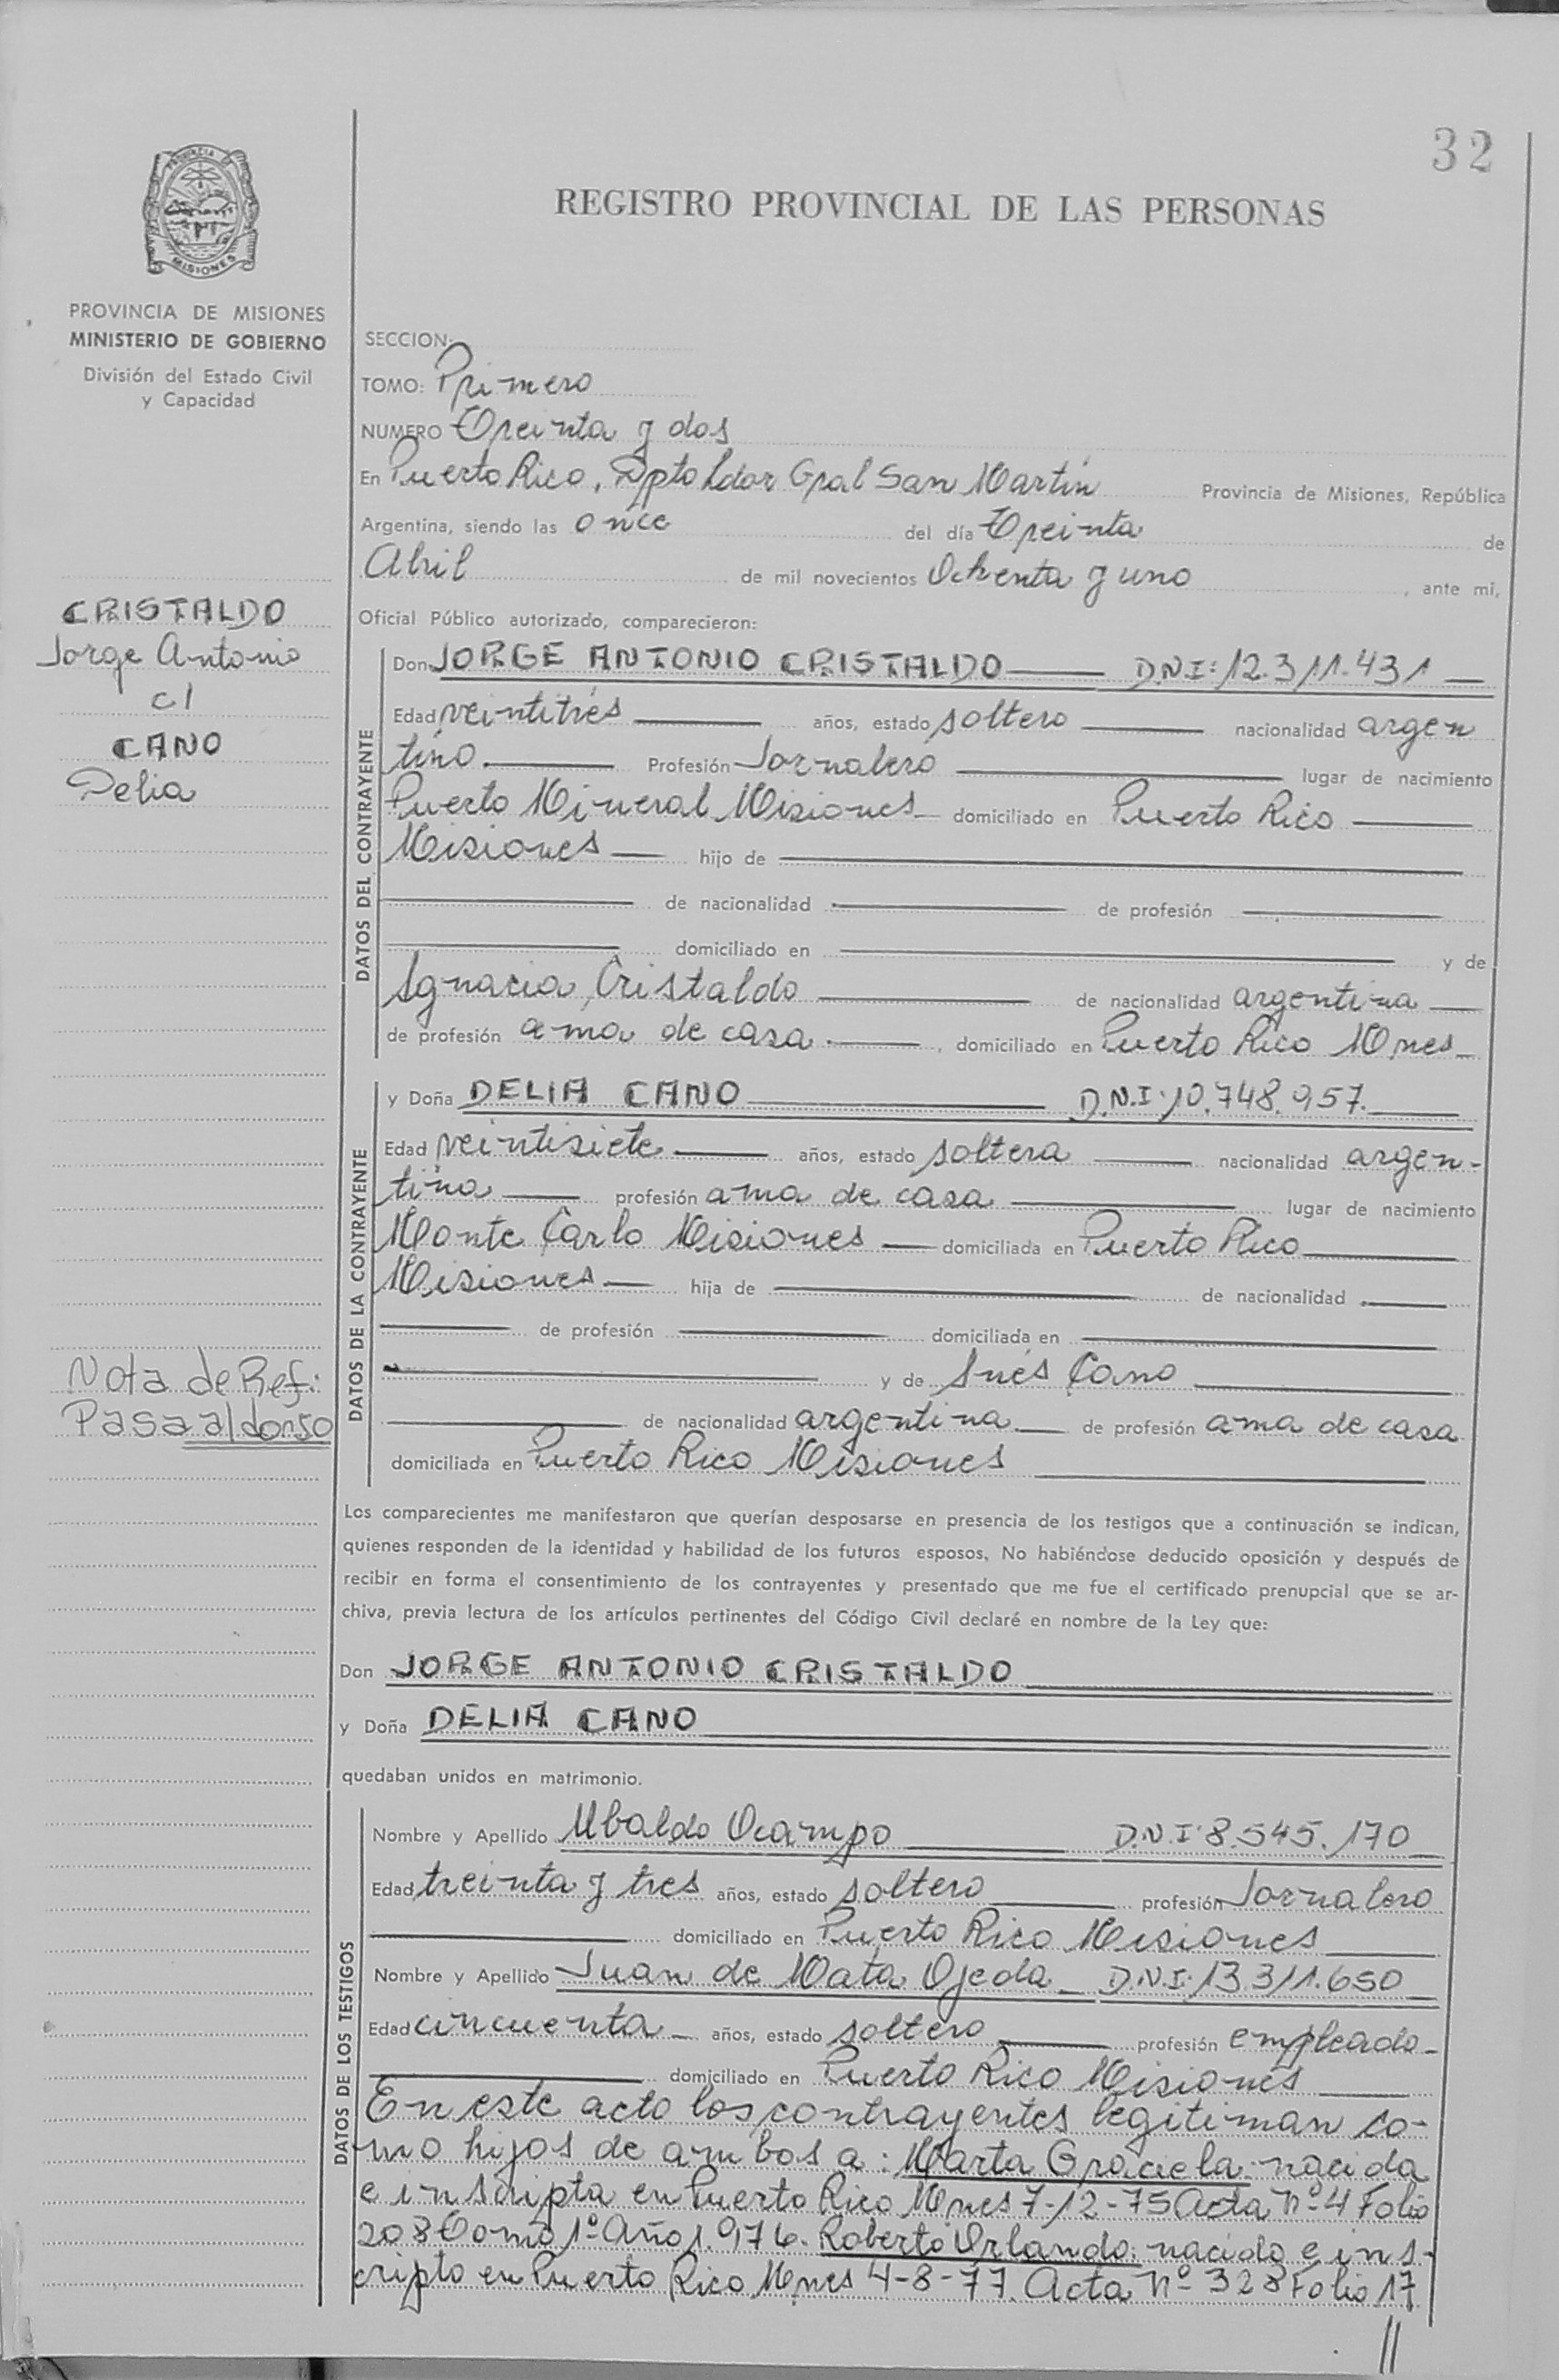 32
REGISTRO PROVINCIAL DE LAS PERSONAS
PROVINCIA DE MISIONES
MINISTERIO DE GOBIERNO
División del Estado Civil
y Capacidad
SECCION:
TOMO: Primero
NUMERO Treinta y dos
En Puerto Rico, Dpto Ldor Gral San Martín Provincia de Misiones, República
Argentina, siendo las once del día Treinta de
Abril de mil novecientos Ochenta y uno, ante mi,
Oficial Público autorizado, comparecieron:
CRISTALDO
Jorge Antonio
c/
CANO
Delia
DATOS DEL CONTRAYENTE
Don JORGE ANTONIO CRISTALDO D.N.I: 12.311.431
Edad veintitrés años, estado soltero nacionalidad argen
tino. Profesión Jornalero lugar de nacimiento
Puerto Mineral Misiones domiciliado en Puerto Rico
Misiones hijo de
de nacionalidad de profesión
domiciliado en y de
Ignacia Cristaldo de nacionalidad argentina
de profesión ama de casa., domiciliado en Puerto Rico Mnes
DATOS DE LA CONTRAYENTE
y Doña DELIA CANO D.N.I. 10.748.957.
Edad veintisiete años, estado soltera nacionalidad argen-
tina profesión ama de casa lugar de nacimiento
Monte Carlo Misiones domiciliada en Puerto Rico
Misiones hija de de nacionalidad
de profesión domiciliada en
y de Inés Cano
de nacionalidad argentina de profesión ama de casa
domiciliada en Puerto Rico Misiones
Nota de Ref:
Pasa al dorso
Los comparecientes me manifestaron que querían desposarse en presencia de los testigos que a continuación se indican,
quienes responden de la identidad y habilidad de los futuros esposos. No habiéndose deducido oposición y después de
recibir en forma el consentimiento de los contrayentes y presentado que me fue el certificado prenupcial que se ar-
chiva, previa lectura de los artículos pertinentes del Código Civil declaré en nombre de la Ley que:
Don JORGE ANTONIO CRISTALDO
y Doña DELIA CANO
quedaban unidos en matrimonio.
DATOS DE LOS TESTIGOS
Nombre y Apellido Ubaldo Ocampo D.N.I. 8.545.170
Edad treinta y tres años, estado soltero profesión Jornalero
domiciliado en Puerto Rico Misiones
Nombre y Apellido Juan de Mata Ojeda D.N.I. 13.311.650
Edad cincuenta años, estado soltero profesión empleado
domiciliado en Puerto Rico Misiones
En este acto los contrayentes legitiman co-
mo hijos de ambos a: Marta Graciela: nacida
e inscripta en Puerto Rico Mnes 7-12-75 Acta Nº 4 Folio
208 Tomo 1º Año 1.976. Roberto Orlando: nacido e ins-
cripto en Puerto Rico Mnes 4-8-77. Acta nº 328 Folio 17
//